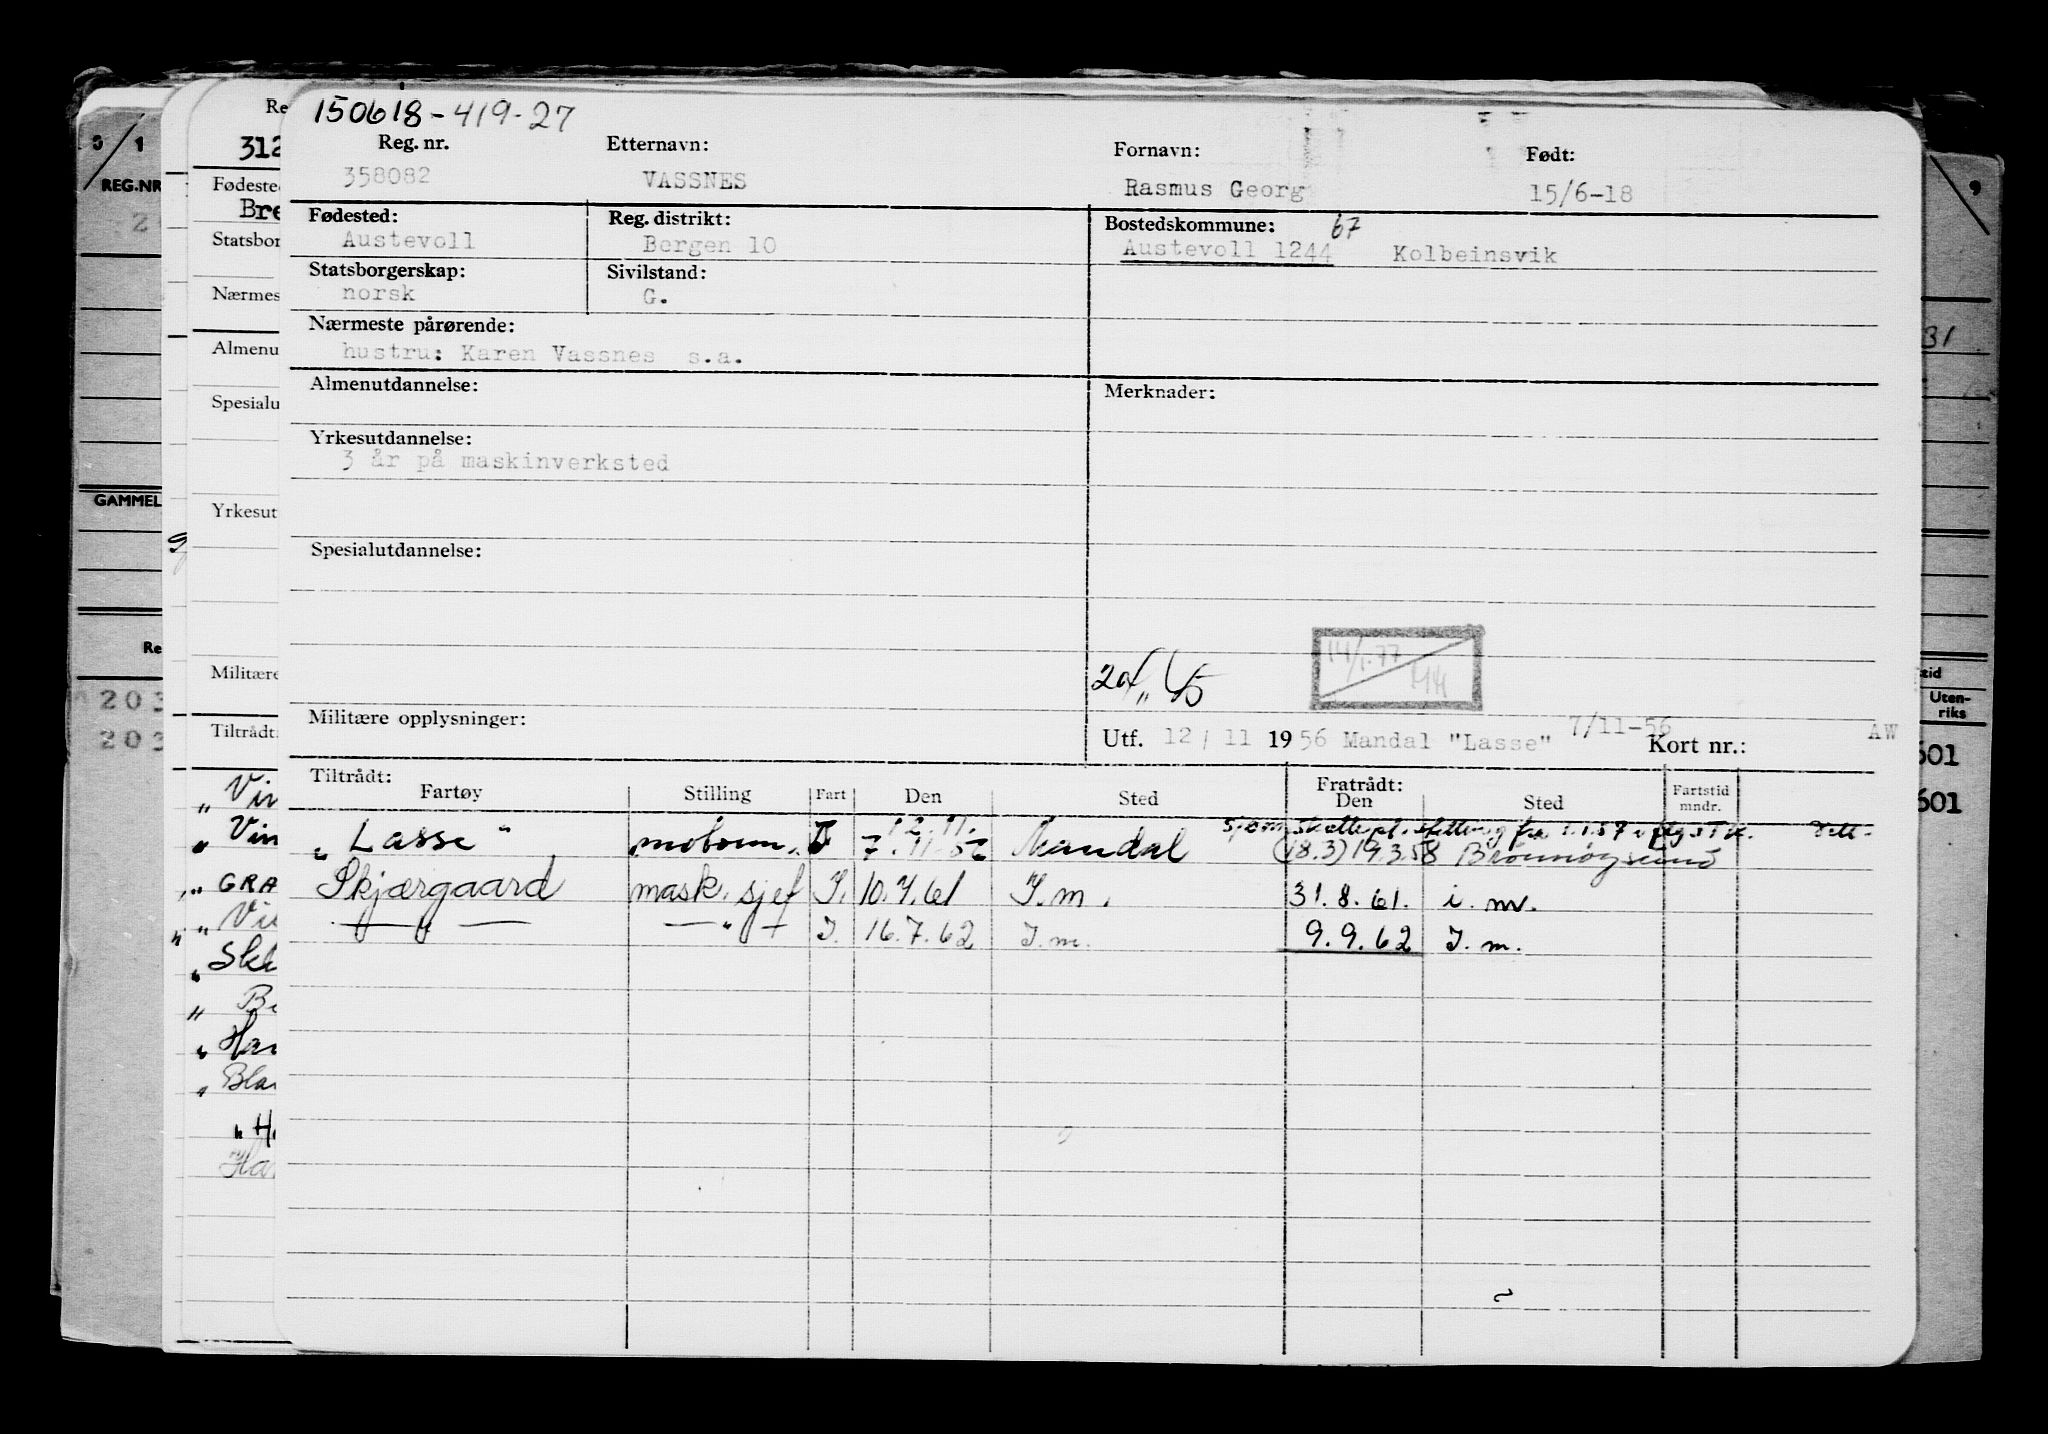 150618-419-27
Reg. nr. Etternavn: Fornavn: Født:
358082 VASSNES Rasmus Georg 15/6-18
Fødested: Reg. distrikt: Bostedskommune: 67
Austevoll Bergen 10 Austevoll 1244 Kolbeinsvik
Statsborgerskap: Sivilstand:
norsk G.
Nærmeste pårørende:
hustru: Karen Vassnes s.a.
Almenutdannelse: Merknader:
Yrkesutdannelse:
3 år på maskinverksted
Spesialutdannelse:
14/1.77
Militære opplysninger:
Utf. 12/11 1956 Mandal "Lasse" 7/11-56 Kort nr.: AW
Tiltrådt: Fratrådt:
Fartøy Stilling Fart Den Sted Den Sted Fartstid mndr.
12.11. fra 1.1.57
"Lasse" Mandal (18.3) 19.3.58 Brønnøysund
Skjærgaard mask. sjef I. 10.7.61 I.m. 31.8.61. i. m.
— " — — " — I. 16.7.62 I.m. 9.9.62 I.m.
Re
312
Fødested
Bre
Statsbor
Nærmes
Almenu
Spesialu
Yrkesut
Militære
Tiltrådt
" Vin
" Vin
" GRA
" Vi
" Ha
" Bla
" H.
Ha
0/1
REG.NR
2
GAMMEL
Re
203
203
9
31
eid
Uten-
riks
601
601